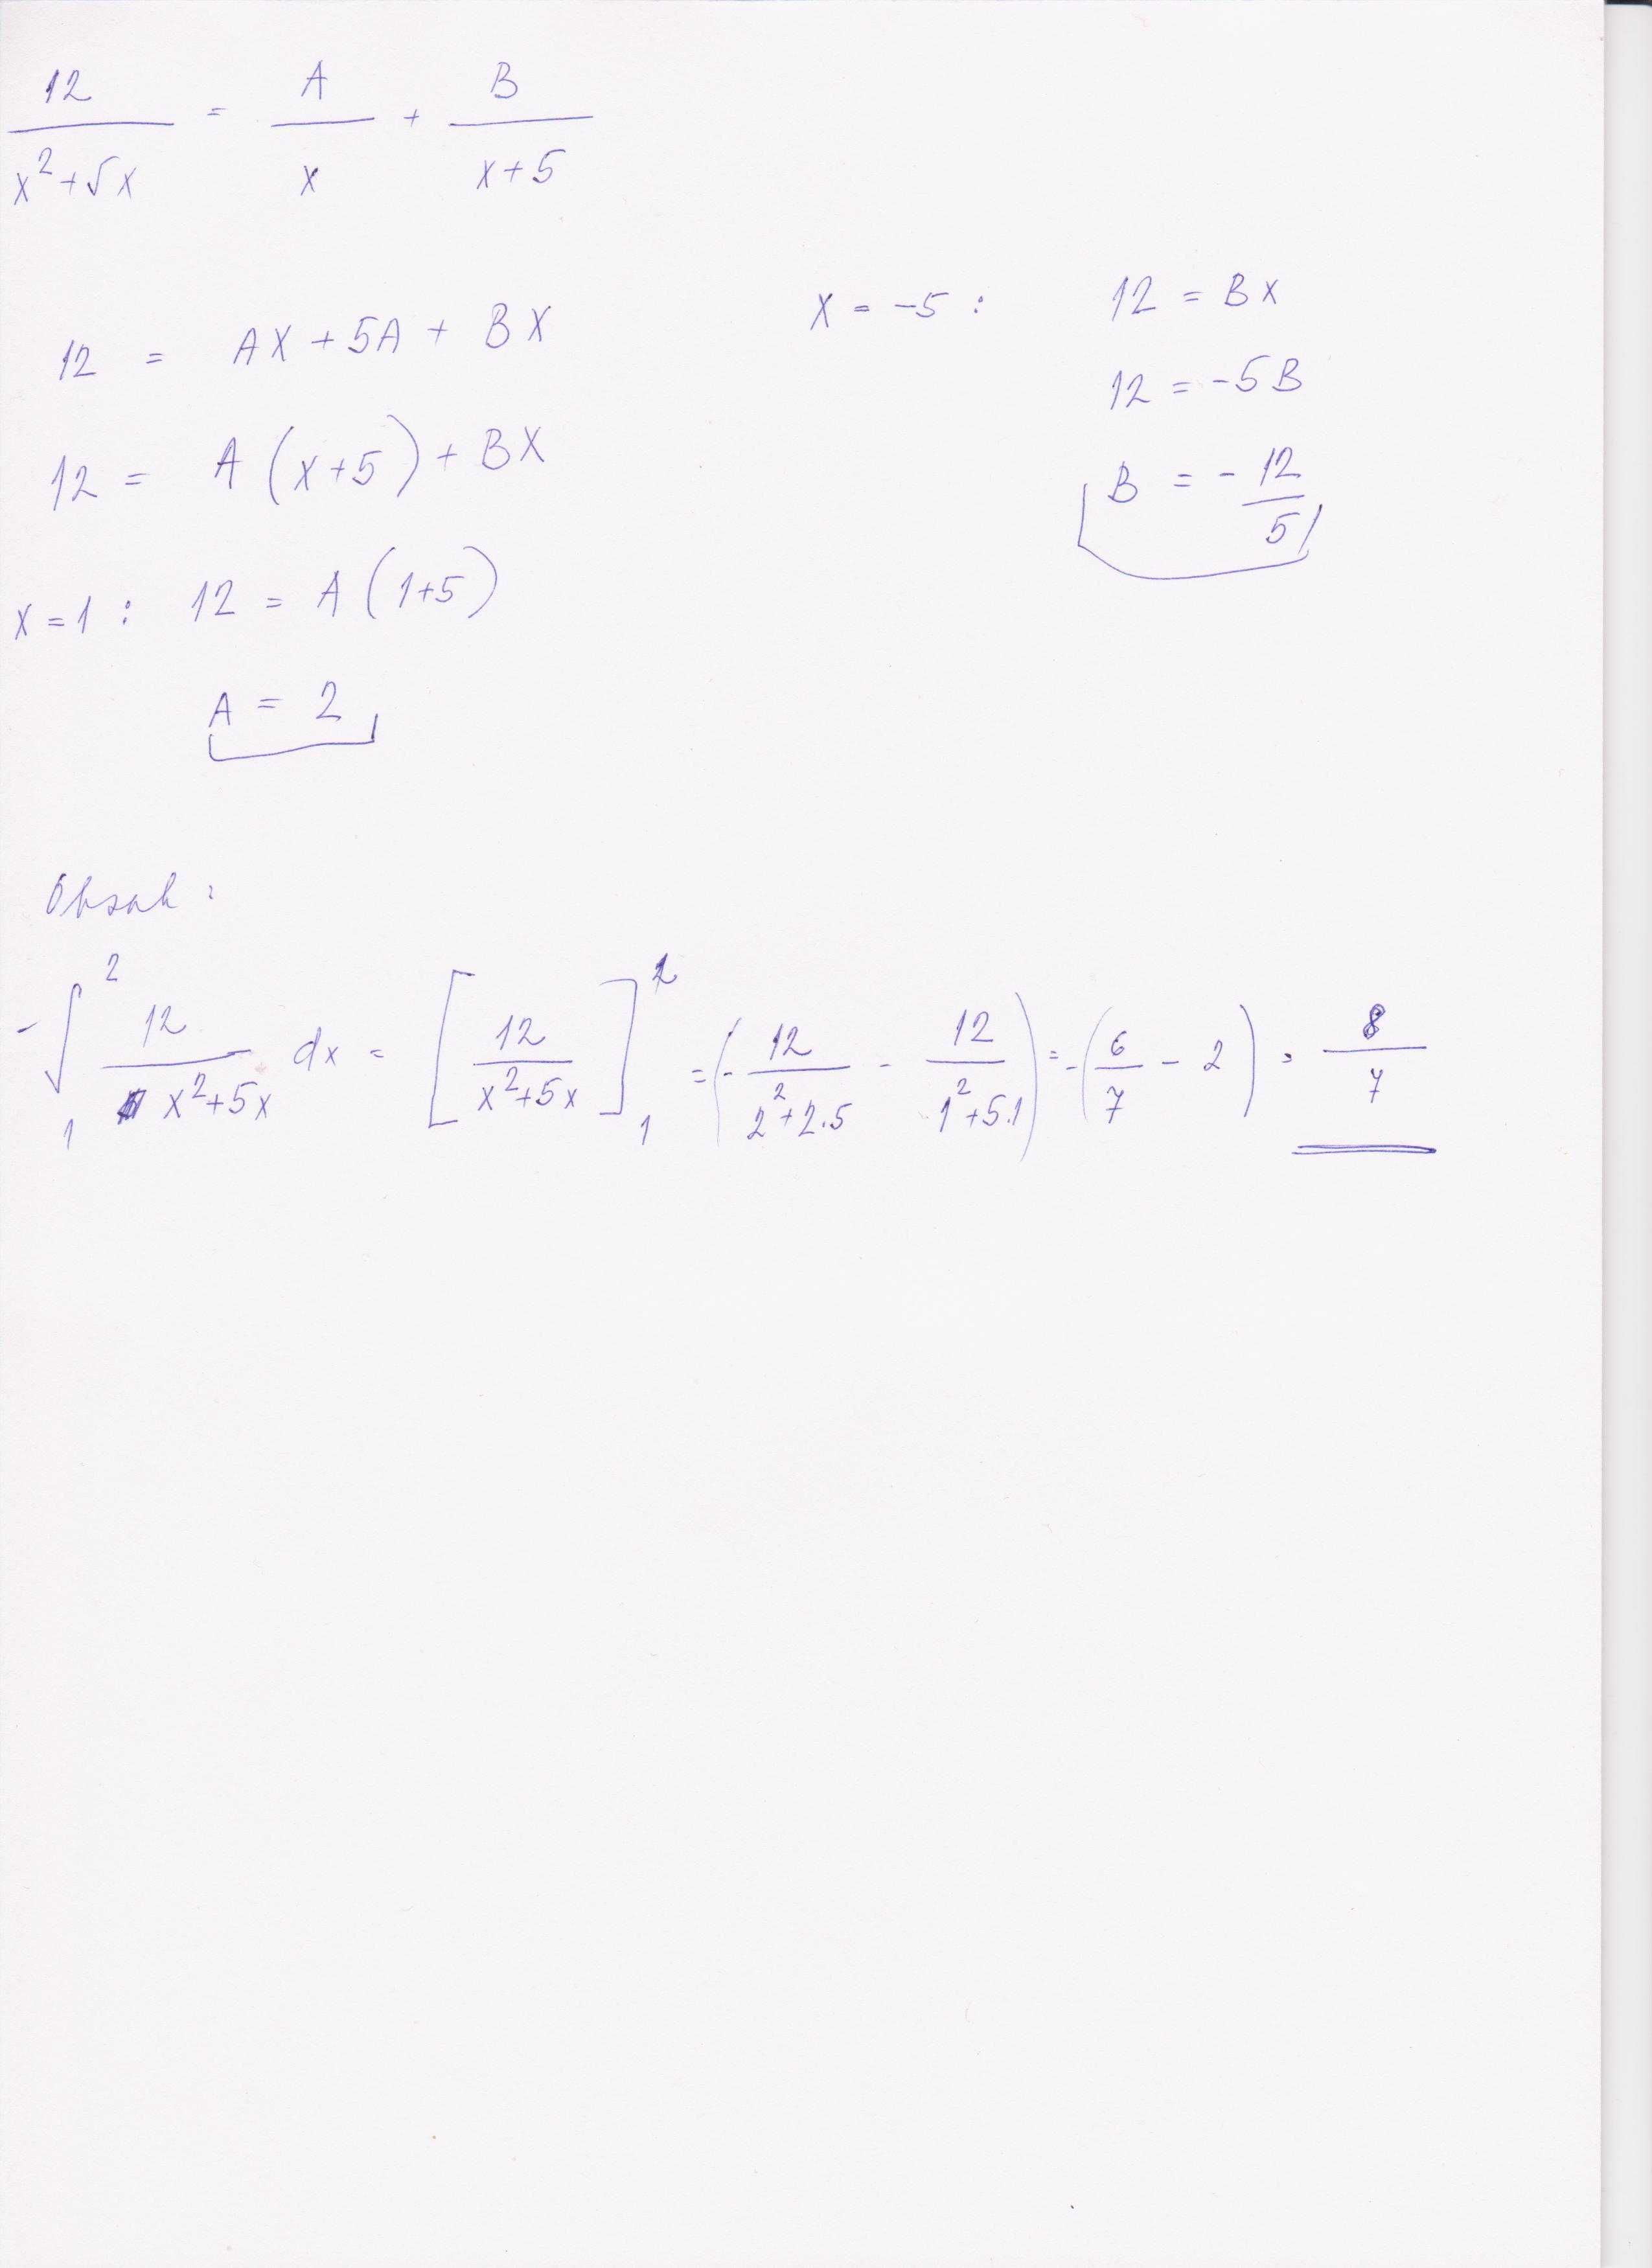 12/(x²+5x) = A/x + B/(x+5)
12 = AX + 5A + BX
12 = A(x+5) + BX
x=1: 12 = A(1+5)
A = 2
x = -5: 12 = BX
12 = -5B
B = -12/5
Obsah:
-∫₁² 12/(x²+5x) dx = [12/(x²+5x)]₁² = (-12/(2²+2.5) - 12/(1²+5.1)) = -(6/7 - 2) = 8/7